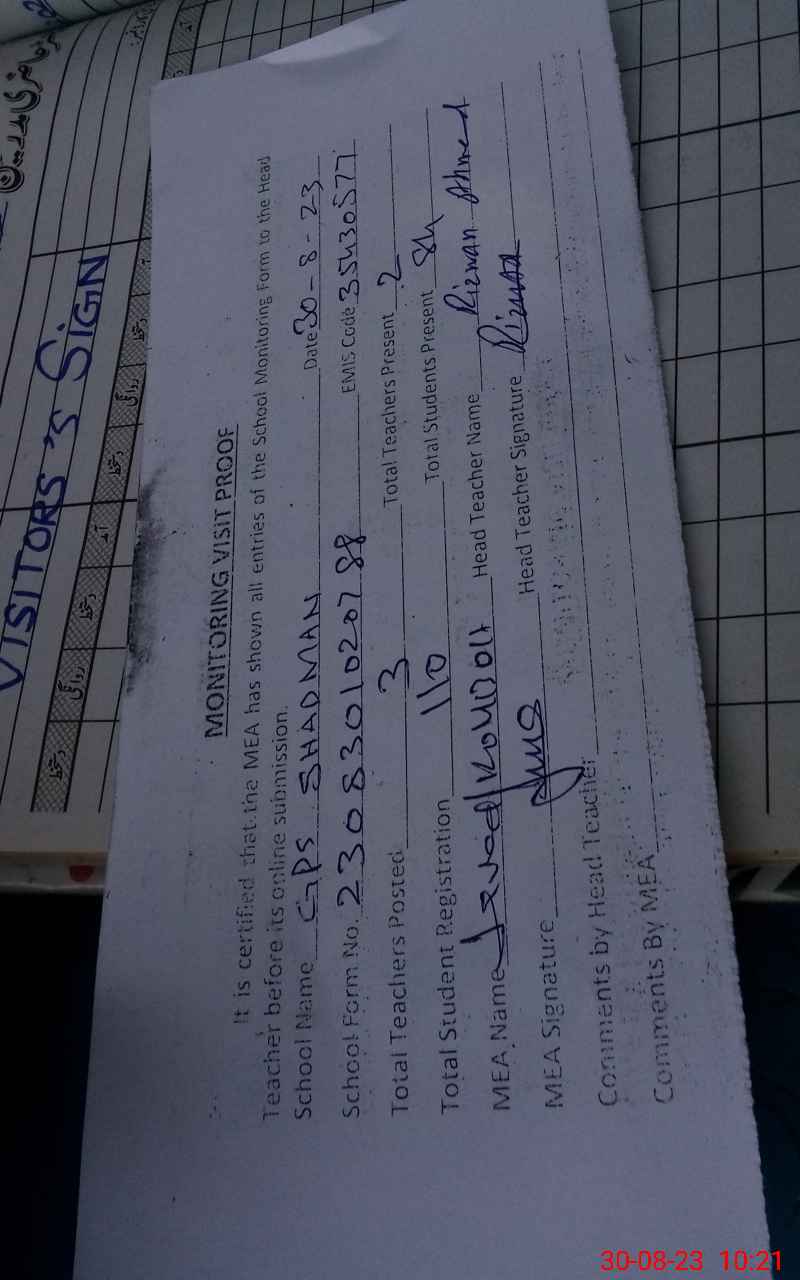 VISITORS'S SIGN
MONITORING VISIT PROOF
It is certified that the MEA has shown all entries of the School Monitoring Form to the Head
Teacher before its online submission.
School Name GPS SHADMAN Date 30-8-23
School Form No. 23083010207 88 EMIS Code 35430577
Total Teachers Posted 3 Total Teachers Present 2
Total Student Registration 110 Total Students Present 84
MEA Name Javed Head Teacher Name Rizwan Ahmed
MEA Signature Head Teacher Signature
Comments by Head Teacher
Comments By MEA
30-08-23 10:21